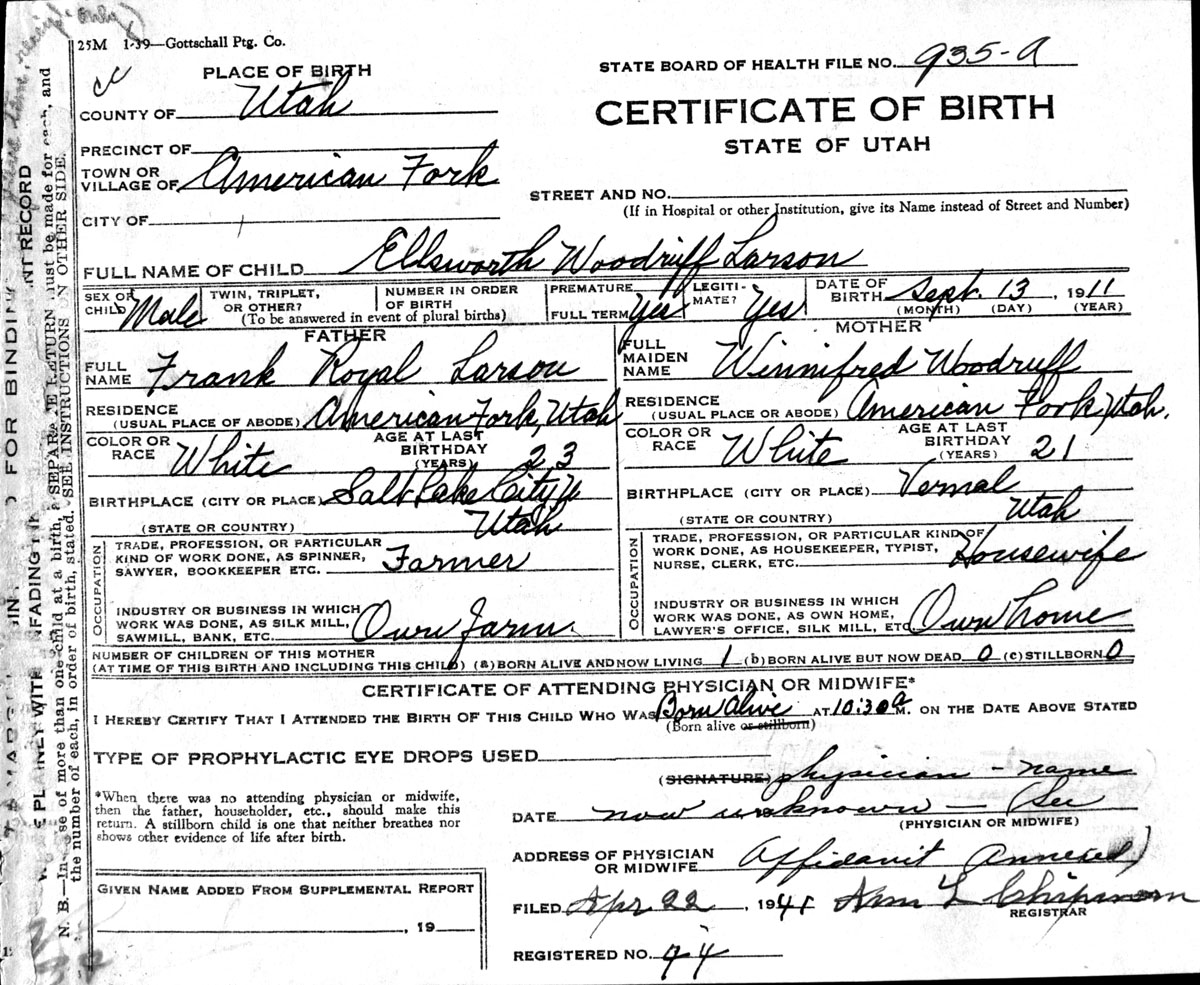 25M 1-39—Gottschall Ptg. Co.
STATE BOARD OF HEALTH FILE NO. 935-a
PLACE OF BIRTH
COUNTY OF Utah
CERTIFICATE OF BIRTH
STATE OF UTAH
PRECINCT OF
TOWN OR
VILLAGE OF American Fork
STREET AND NO.
(If in Hospital or other Institution, give its Name instead of Street and Number)
CITY OF
FULL NAME OF CHILD Ellsworth Woodruff Larson
SEX OF
CHILD Male
TWIN, TRIPLET,
OR OTHER?
NUMBER IN ORDER
OF BIRTH
(To be answered in event of plural births)
PREMATURE
FULL TERM Yes
LEGITI-
MATE? Yes
DATE OF
BIRTH Sept. 13, 1911
(MONTH) (DAY) (YEAR)
FATHER
FULL
NAME Frank Royal Larson
RESIDENCE
(USUAL PLACE OF ABODE) American Fork, Utah
COLOR OR
RACE White
AGE AT LAST
BIRTHDAY
(YEARS) 23
BIRTHPLACE (CITY OR PLACE) Salt Lake City U
(STATE OR COUNTRY) Utah
OCCUPATION
TRADE, PROFESSION, OR PARTICULAR
KIND OF WORK DONE, AS SPINNER,
SAWYER, BOOKKEEPER ETC. Farmer
INDUSTRY OR BUSINESS IN WHICH
WORK WAS DONE, AS SILK MILL,
SAWMILL, BANK, ETC. Own farm
MOTHER
FULL
MAIDEN
NAME Winnifred Woodruff
RESIDENCE
(USUAL PLACE OR ABODE) American Fork, Utah.
COLOR OR
RACE White
AGE AT LAST
BIRTHDAY
(YEARS) 21
BIRTHPLACE (CITY OR PLACE) Vernal
(STATE OR COUNTRY) Utah
OCCUPATION
TRADE, PROFESSION, OR PARTICULAR KIND OF
WORK DONE, AS HOUSEKEEPER, TYPIST,
NURSE, CLERK, ETC. Housewife
INDUSTRY OR BUSINESS IN WHICH
WORK WAS DONE, AS OWN HOME,
LAWYER'S OFFICE, SILK MILL, ETC Own home
NUMBER OF CHILDREN OF THIS MOTHER
(AT TIME OF THIS BIRTH AND INCLUDING THIS CHILD) (a) BORN ALIVE AND NOW LIVING 1 (b) BORN ALIVE BUT NOW DEAD 0 (c) STILLBORN 0
CERTIFICATE OF ATTENDING PHYSICIAN OR MIDWIFE*
I HEREBY CERTIFY THAT I ATTENDED THE BIRTH OF THIS CHILD WHO WAS Born Alive AT 10:30 a M. ON THE DATE ABOVE STATED
(Born alive or stillborn)
TYPE OF PROPHYLACTIC EYE DROPS USED
(SIGNATURE) physician - name
*When there was no attending physician or midwife,
then the father, householder, etc., should make this
return. A stillborn child is one that neither breathes nor
shows other evidence of life after birth.
DATE now unknown - (See
(PHYSICIAN OR MIDWIFE)
ADDRESS OF PHYSICIAN
OR MIDWIFE Affidavit Annexed)
GIVEN NAME ADDED FROM SUPPLEMENTAL REPORT
, 19
FILED Apr 22, 1941 L Chipman
REGISTRAR
REGISTERED NO. 94
FOR BINDING
NT RECORD
PLAINLY WITH UNFADING INK
N. B.—In case of more than one child at a birth, a SEPARATE RETURN must be made for each, and
the number of each, in order of birth, stated. SEE INSTRUCTIONS ON OTHER SIDE.